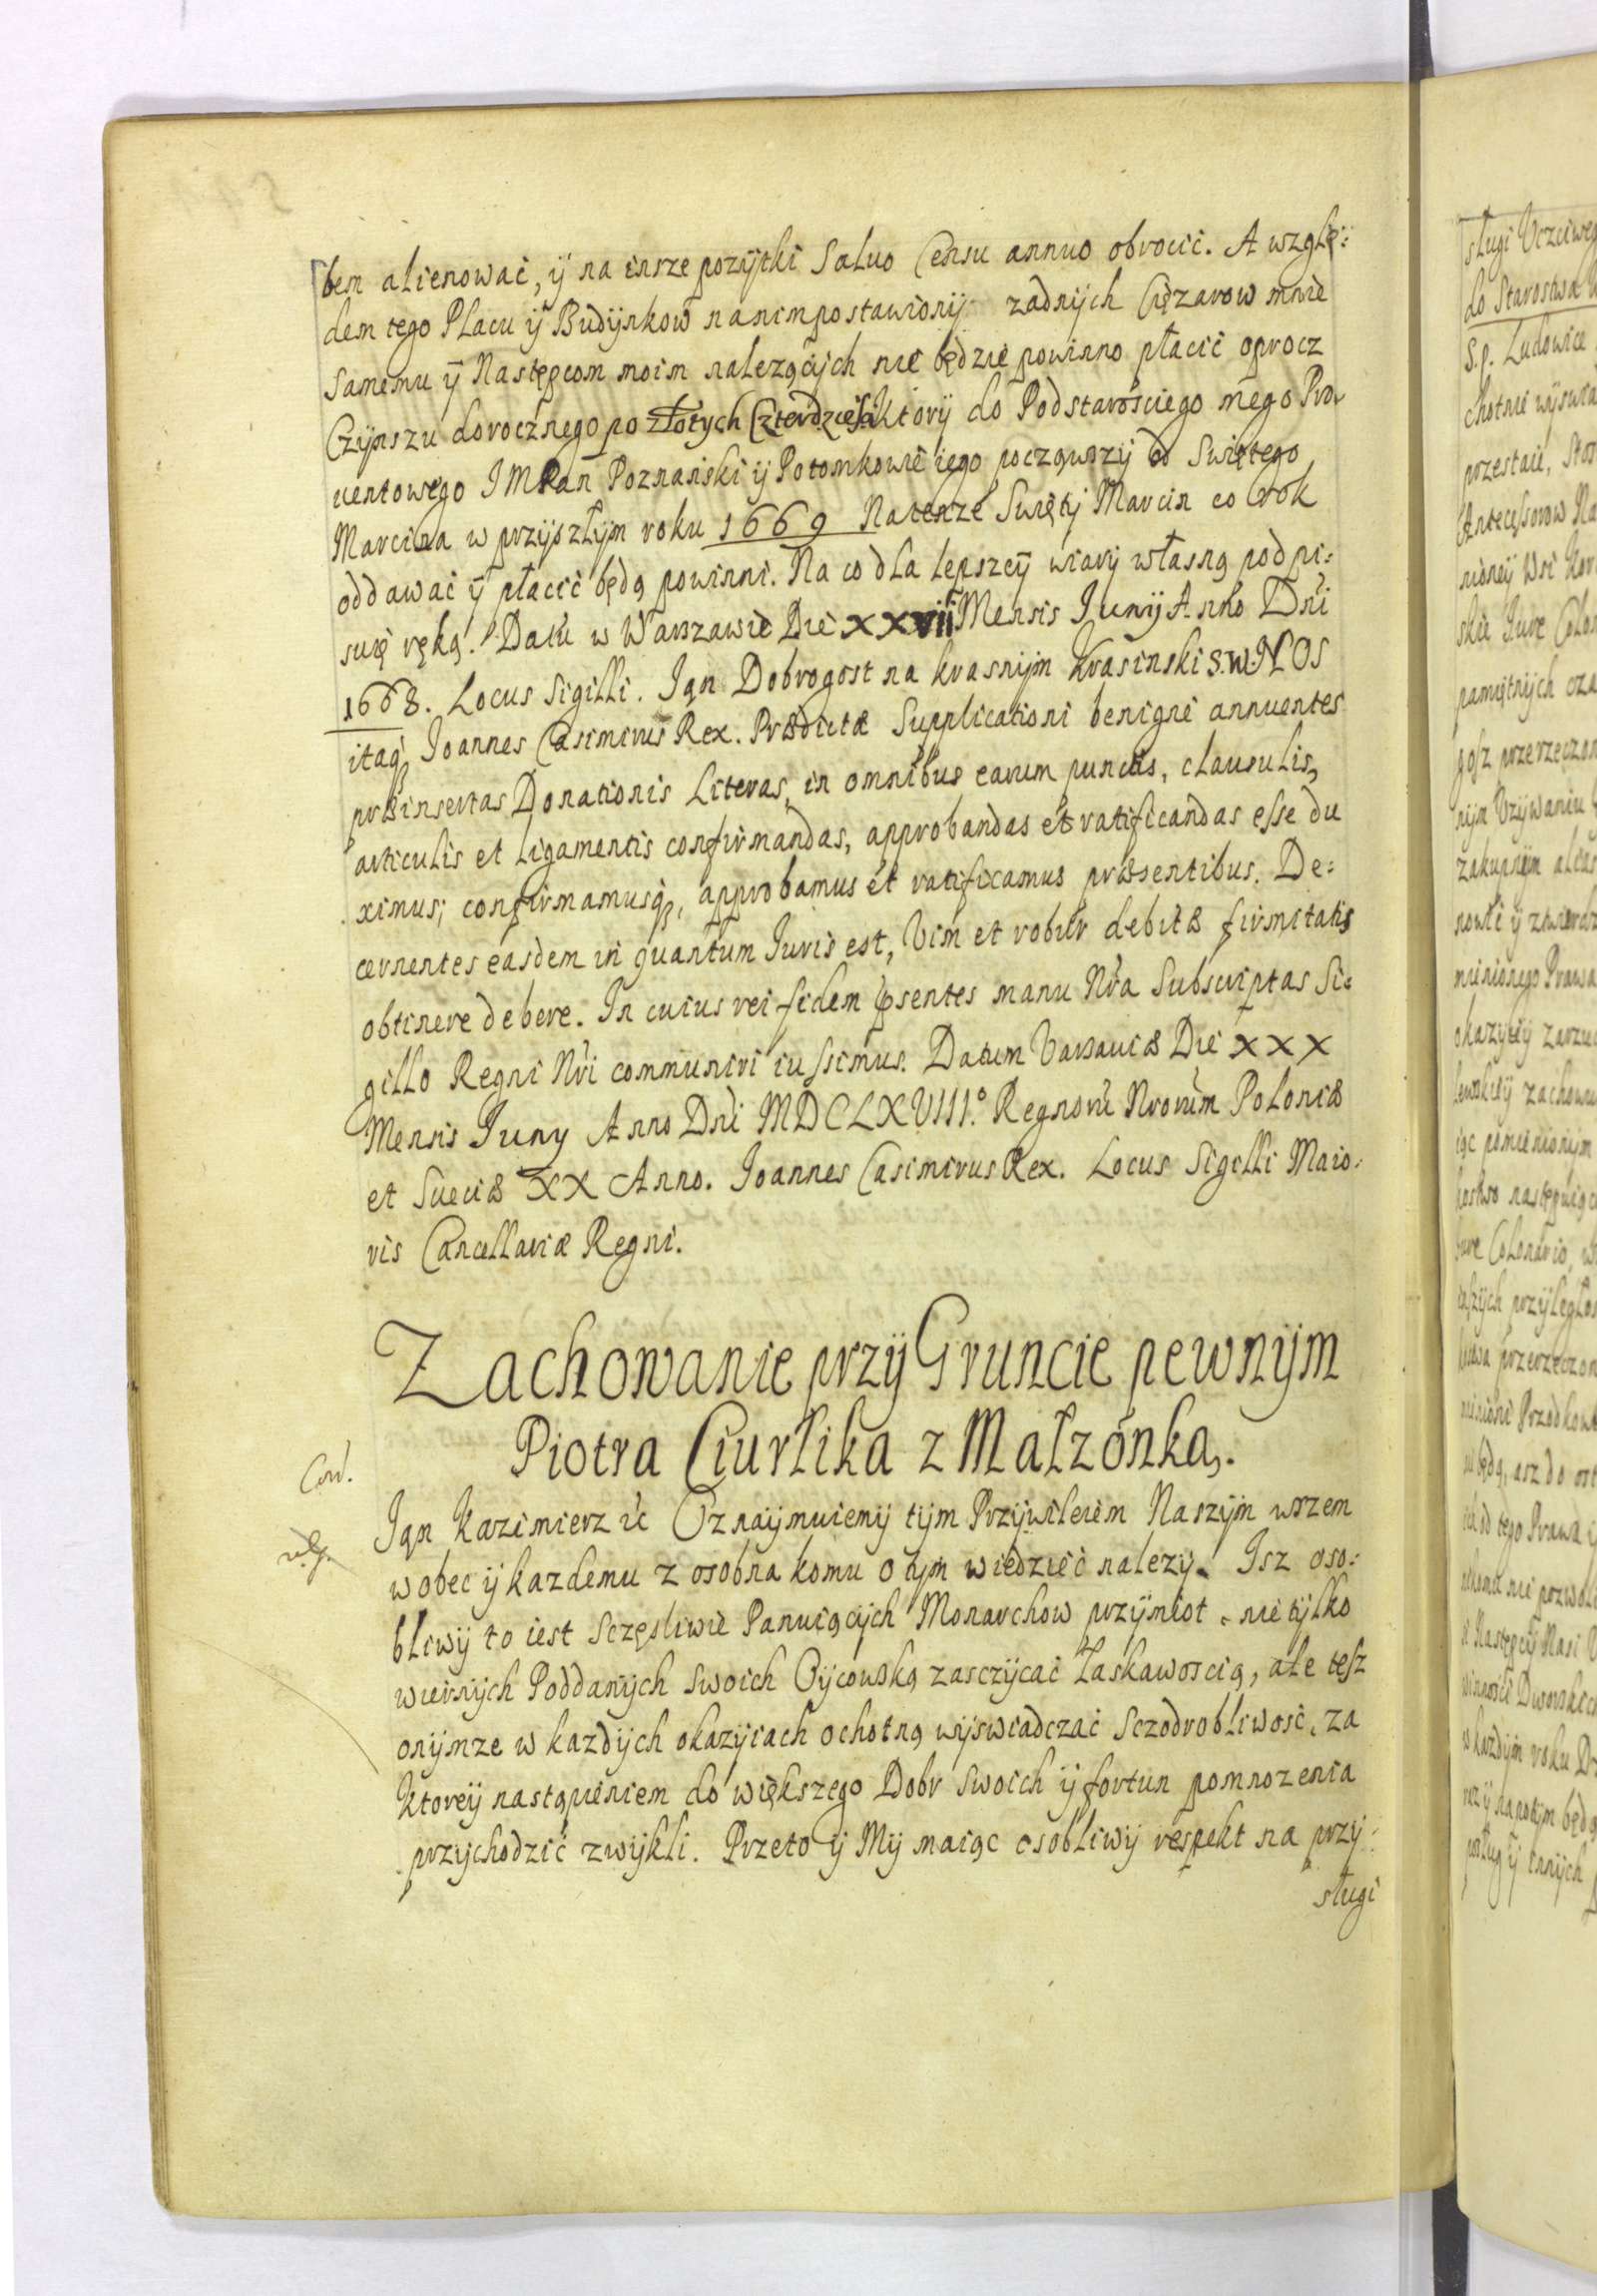 bem alienować, ÿ na insze pozÿtki Saluo Censu annuo obrocic. A wzglę:
dem tego Placu ÿ Budÿnkow nanim postawionÿ zadnÿch Cięzarow mnie
Samemu ÿ Następcom moim nalezącÿch nie będzie powinno płacić oprocz
Czÿnszu dorocznego po złotych Czterdzieści ktorÿ do Podstarościego mego Pro
uentowego JMPan Poznański ÿ Potomkowie iego począwszÿ od Swiętego
Marcina w przÿszłÿm roku 1669 Natenze Swiętÿ Marcin co rok
oddawać ÿ płacić będą powinni. Na co dla lepszeÿ wiarÿ własną podpi:
suię ręką. Datu w Warszawie Die XXVII Mensis Junÿ Anno Dni
1668. Locus Sigilli. Jan Dobrogost na krasnÿm Krasinski S.W. NOS
itaq Joannes Casimirus Rex. Prædictæ Supplicationi benigne annuentes
præinsertas Donationis Literas, in omnibus earum punctis, clausulis,
articulis et ligamentis confirmandas, approbandas et ratificandas esse du
ximus; confirmamusq, approbamus et ratificamus præsentibus. De:
cernentes easdem in quantum Juris est, Vim et robur debitæ firmitatis
obtinere debere. In cuius rei fidem psentes manu Nra Subscriptas Si:
gillo Regni Nri communiri iussimus. Datum Varsaviæ Die XXX
Mensis Juny Anno Dni MDCLXVIII.º Regnoru Nrorum Poloniæ
et Sueciæ XX Anno. Joannes Casimirus Rex. Locus Sigilli Maio:
ris Cancellariæ Regni.
Zachowanie przÿ Gruncie pewnÿm
Piotra Ciurlika z Małzonką.
Jan Kazimierz ic Oznaÿmuiemÿ tÿm Przÿwileiem Naszÿm wszem
wobec ÿ kazdemu z osobna komu o tÿm wiedzieć nalezÿ. Isz oso:
bliwÿ to iest Sczęsliwie Panuiącÿch Monarchow przÿmiot, nie tÿlko
wiernÿch Poddanÿch swoich Oÿcowską zasczÿcać Łaskawoscią, ale tesz
onÿmze w kazdÿch okazÿiach ochotną wÿswiadczać Sczodrobliwość, za
ktoreÿ nastąpieniem do większego Dobr swoich ÿ fortun pomnozenia
przÿchodzić zwÿkli. Przeto ÿ Mÿ maiąc osobliwÿ respekt na przÿ:
sługi